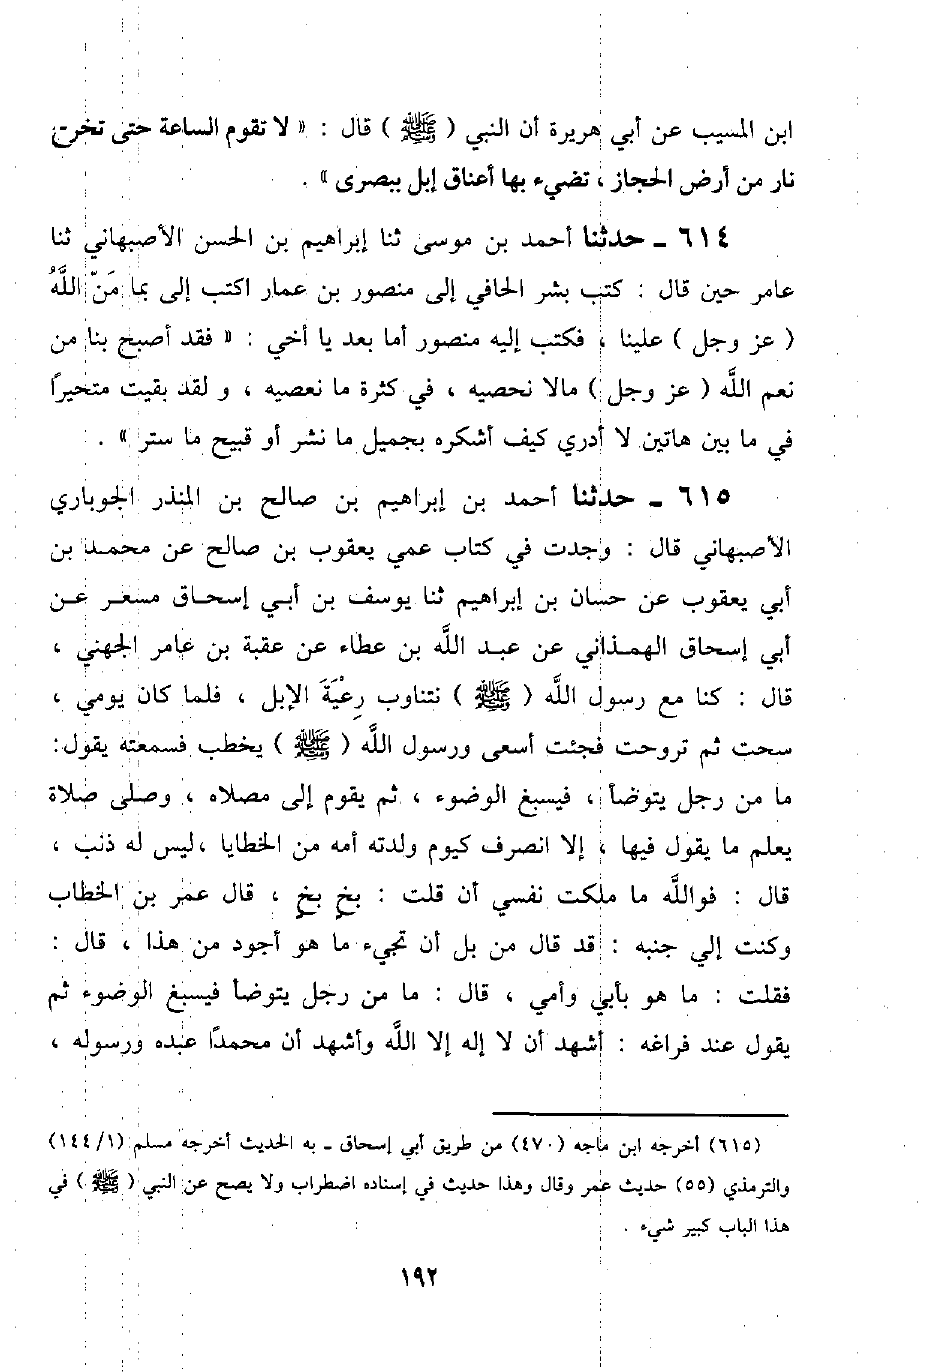 ابن المسيب عن أبي هريرة أن النبي ( ﷺ ) قال : « لا تقوم الساعة حتى تخرج
نار من أرض الحجاز ، تضيء بها أعناق إبل ببصرى » .
٦١٤ ـ حدثنا أحمد بن موسى ثنا إبراهيم بن الحسن الأصبهاني ثنا
عامر حين قال : كتب بشر الحافي إلى منصور بن عمار اكتب إلى بما مَنّ اللَّهُ
( عز وجل ) علينا ، فكتب إليه منصور أما بعد يا أخي : « فقد أصبح بنا من
نعم اللَّه ( عز وجل ) مالا نحصيه ، في كثرة ما نعصيه ، و لقد بقيت متحيراً
في ما بين هاتين لا أدري كيف أشكره بجميل ما نشر أو قبيح ما ستر » .
٦١٥ ـ حدثنا أحمد بن إبراهيم بن صالح بن المنذر الجوباري
الأصبهاني قال : وجدت في كتاب عمي يعقوب بن صالح عن محمد بن
أبي يعقوب عن حسان بن إبراهيم ثنا يوسف بن أبي إسحاق مسعر عن
أبي إسحاق الهمذاني عن عبد اللَّه بن عطاء عن عقبة بن عامر الجهني ،
قال : كنا مع رسول اللَّه ( ﷺ ) نتناوب رِعْيَةَ الإبل ، فلما كان يومي ،
سحت ثم تروحت فجئت أسعى ورسول اللَّه ( ﷺ ) يخطب فسمعته يقول:
ما من رجل يتوضأ ، فيسبغ الوضوء ، ثم يقوم إلى مصلاه ، وصلى صلاة
يعلم ما يقول فيها ، إلا انصرف كيوم ولدته أمه من الخطايا ،ليس له ذنب ،
قال : فواللَّه ما ملكت نفسي أن قلت : بخٍ بخٍ ، قال عمر بن الخطاب
وكنت إلي جنبه : قد قال من بل أن تجيء ما هو أجود من هذا ، قال :
فقلت : ما هو بأبي وأمي ، قال : ما من رجل يتوضأ فيسبغ الوضوء ثم
يقول عند فراغه : أشهد أن لا إله إلا اللَّه وأشهد أن محمدًا عبده ورسوله ،
(٦١٥) أخرجه ابن ماجه (٤٧٠) من طريق أبي إسحاق ـ به الحديث أخرجه مسلم (١/ ١٤٤)
والترمذي (٥٥) حديث عمر وقال وهذا حديث في إسناده اضطراب ولا يصح عن النبي ( ﷺ ) في
هذا الباب كبير شيء .
١٩٢